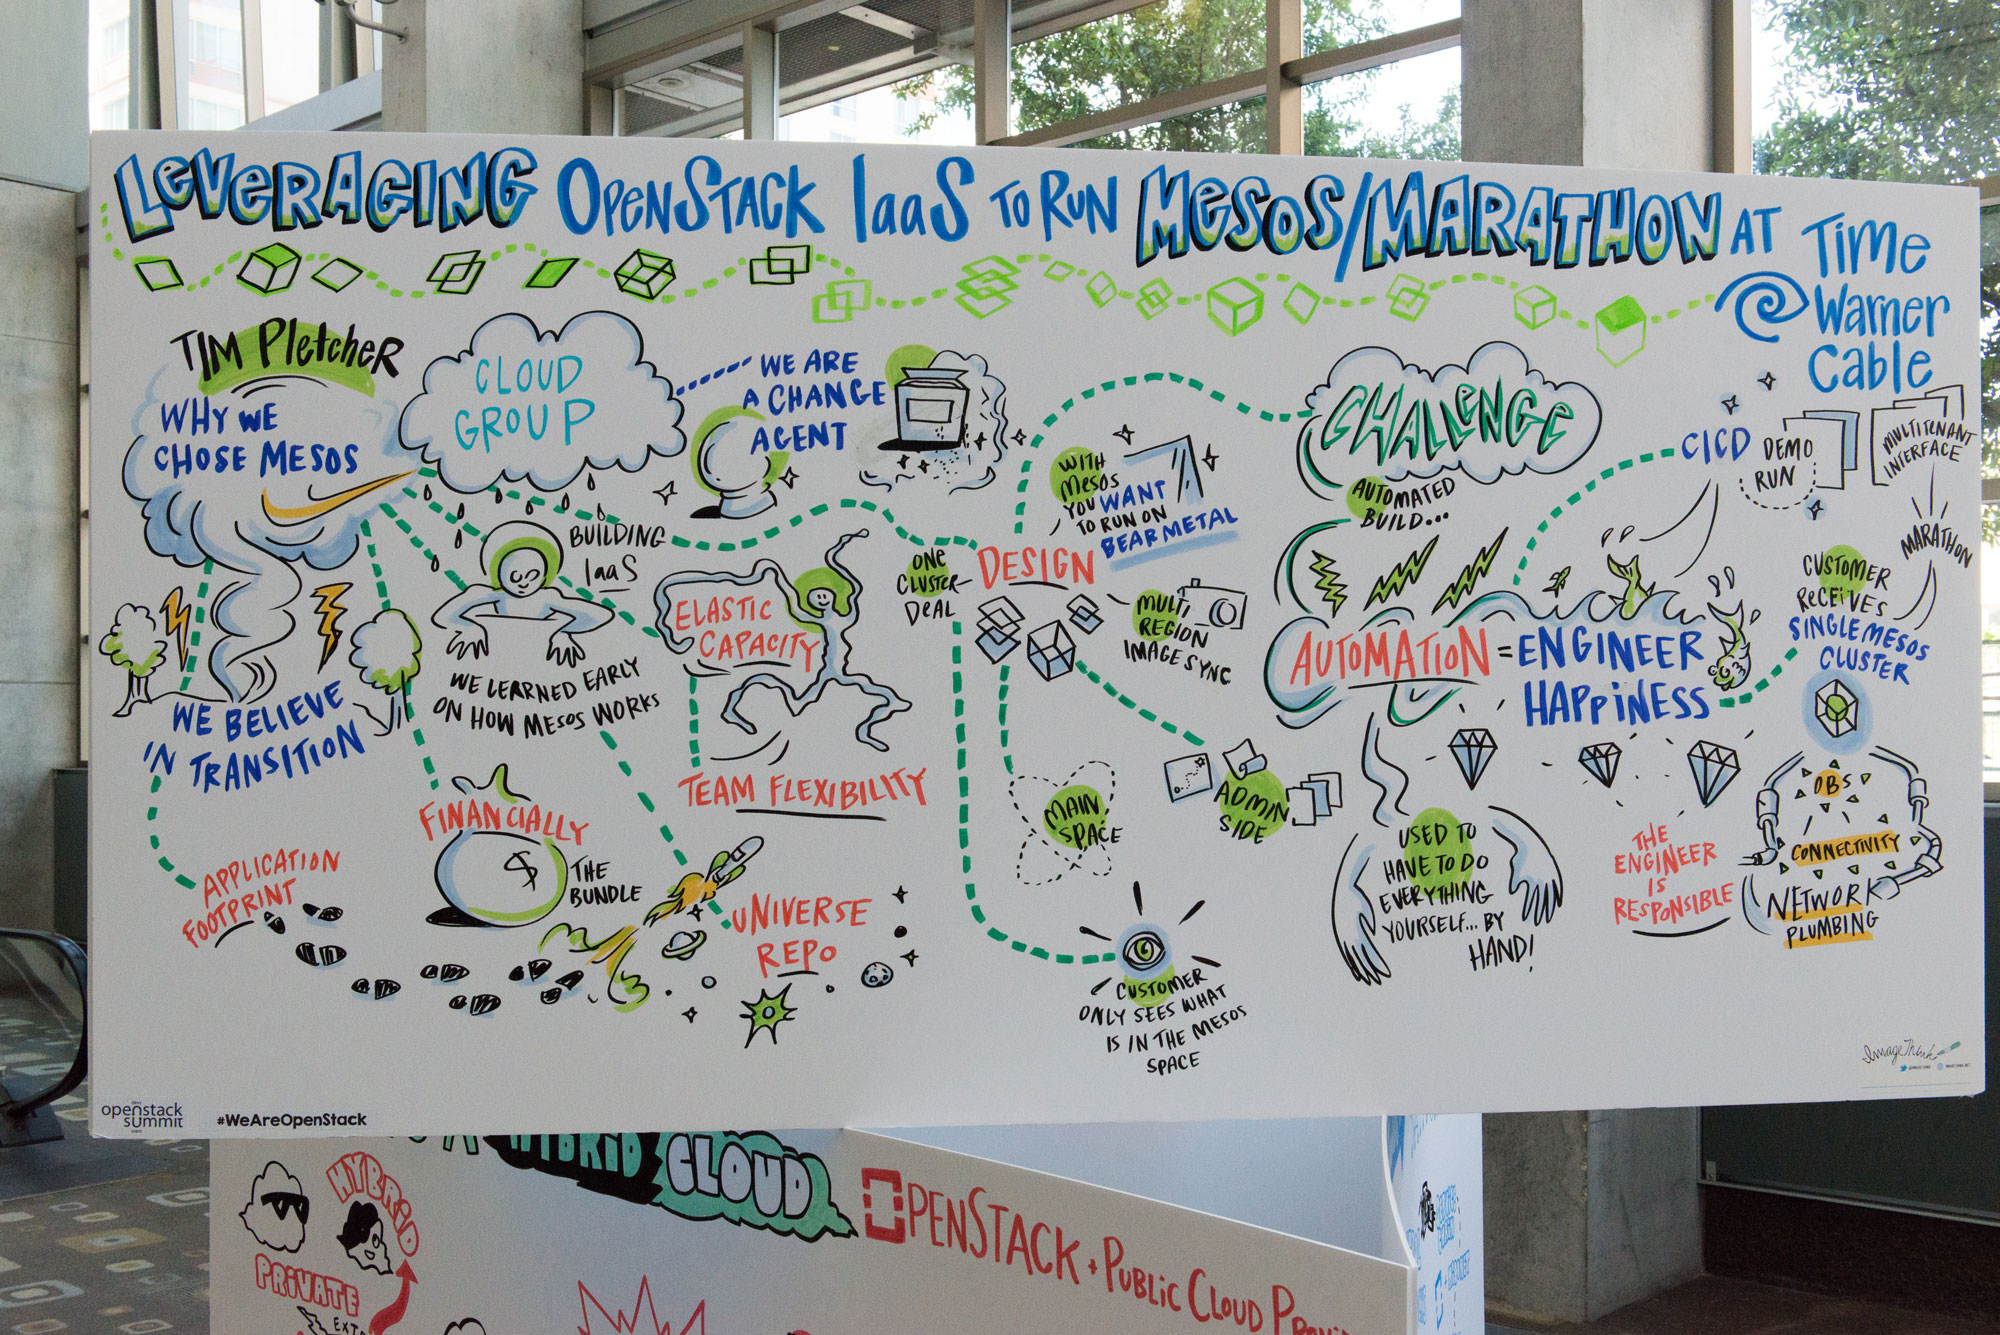 LEVERAGING OPENSTACK IaaS TO RUN MESOS/MARATHON AT
TIME
WARNER
CABLE
TIM PLETCHER
WHY WE
CHOSE MESOS
CLOUD
GROUP
WE ARE
A CHANGE
AGENT
BUILDING
IaaS
WE LEARNED EARLY
ON HOW MESOS WORKS
WE BELIEVE
IN
TRANSITION
APPLICATION
FOOTPRINT
FINANCIALLY
$
THE
BUNDLE
ELASTIC
CAPACITY
TEAM FLEXIBILITY
UNIVERSE
REPO
ONE
CLUSTER
DEAL
DESIGN
WITH
MESOS
YOU WANT
TO RUN ON
BEARMETAL
MULTI
REGION
IMAGE SYNC
MAIN
SPACE
ADMIN
SIDE
CUSTOMER
ONLY SEES WHAT
IS IN THE MESOS
SPACE
CHALLENGE
AUTOMATED
BUILD...
AUTOMATION = ENGINEER
HAPPINESS
USED TO
HAVE TO DO
EVERYTHING
YOURSELF... BY
HAND!
CICD
DEMO
RUN
MULTITENANT
INTERFACE
MARATHON
CUSTOMER
RECEIVES
SINGLE MESOS
CLUSTER
THE
ENGINEER
IS
RESPONSIBLE
OBS
CONNECTIVITY
NETWORK
PLUMBING
ImageThink
openstack
summit
#WeAreOpenStack
HYBRID CLOUD
HYBRID
PRIVATE
OPENSTACK + PUBLIC CLOUD